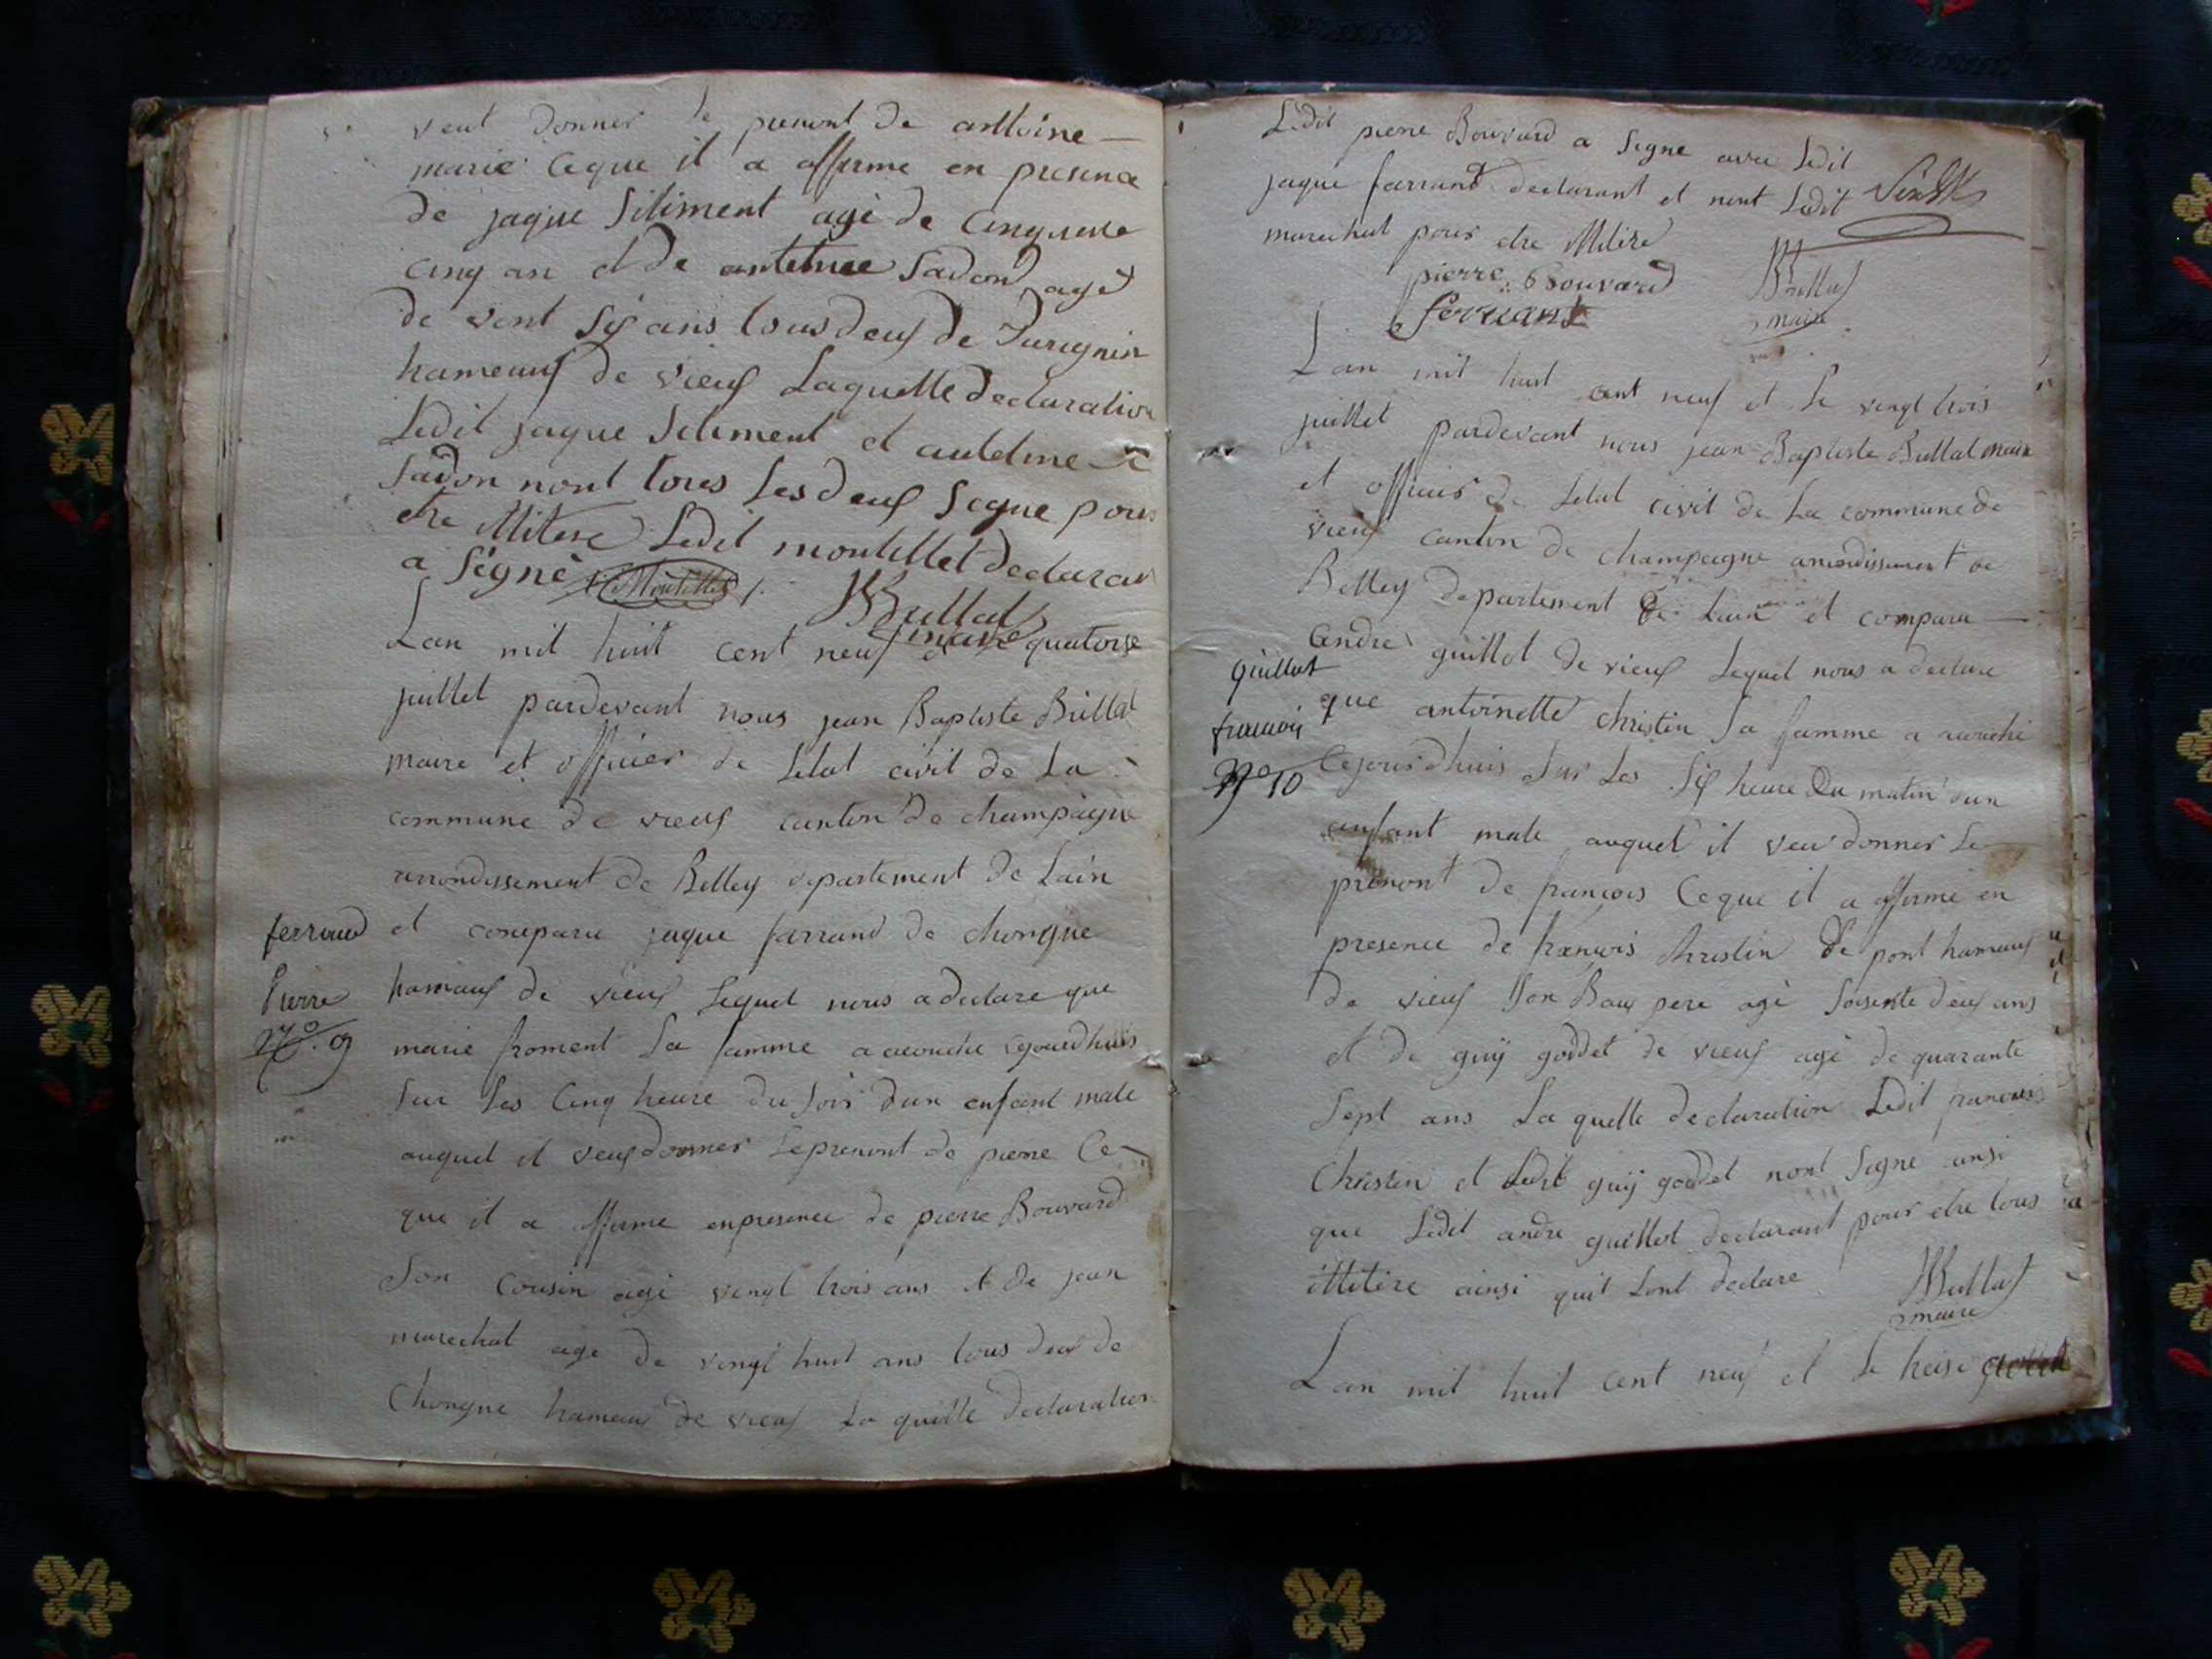 veut donner le prenont de antoine
marie ceque il a afferme en presence
de jaque Siliment agé de cinquente
cinq an et de Sadon agé
de vent Six ans tous deux de
hameaux de vieux Laquelle declaration
Ledit jaque Siliment et
Sadon nont tous Les deux Segne pour
etre illitere Ledit montillet declaran
a Segné Montillet
JBBrillat
maire
Lan mil huit cent neuf et quatorse
juillet pardevant nous jean Baptiste Brillat
maire et officier de Letat civil de La
commune de vieux canton de champagne
arrondissement de Belley departement de Lain
ferrand et comparu jaque farrand de chongne
Pierre hameaux de vieux Lequel nous a declare que
N° 9 marie froment Sa famme a acouche cejourdhuis
Sur Les Cinq heure du Soir dun enfant male
auquel il veux donner Leprenont de pierre Ce
que il a afferme enpresence de pierre Bouvard
Son cousin agé vengt trois ans et de jean
marechal age de vengt huit ans tous deux de
Chongne hameau de vieux La quelle declaration
Ledit pierre Bouvard a Segne avec Ledit
jaque farrand declarant et nont Ledit
marechal pour etre illitere
pierre Bouvard
ferrant
JBBrillat
maire
Lan mil huit cent neuf et Le vengt trois
juillet pardevant nous jean Baptiste Brillat maire
et officier de Letat civil de La commune de
vieux canton de champagne arrondissement de
Belley departement de Lain et comparu
guillot andre guillot de vieux Lequel nous a declare
francois que antoinette christin Sa famme a acouche
N° 10 Cejourdhuis Sur Les Six heure du matin dun
enfant male auquel il veu donner Le
prenont de francois Ceque il a afferme en
presence de francois christin de pont hameaux
de vieux Son Baux pere agé Soisente deux ans
et de guÿ goddet de vieux agé de quarante
Sept ans La quelle declaration Ledit francois
Christin et Ledit guÿ goddet nont Segne ansi
que Ledit andre guillot declarant pour etre tous
illitere ainsi quil Lont declare
JBBrillat
maire
Lan mil huit cent neuf et Le treise